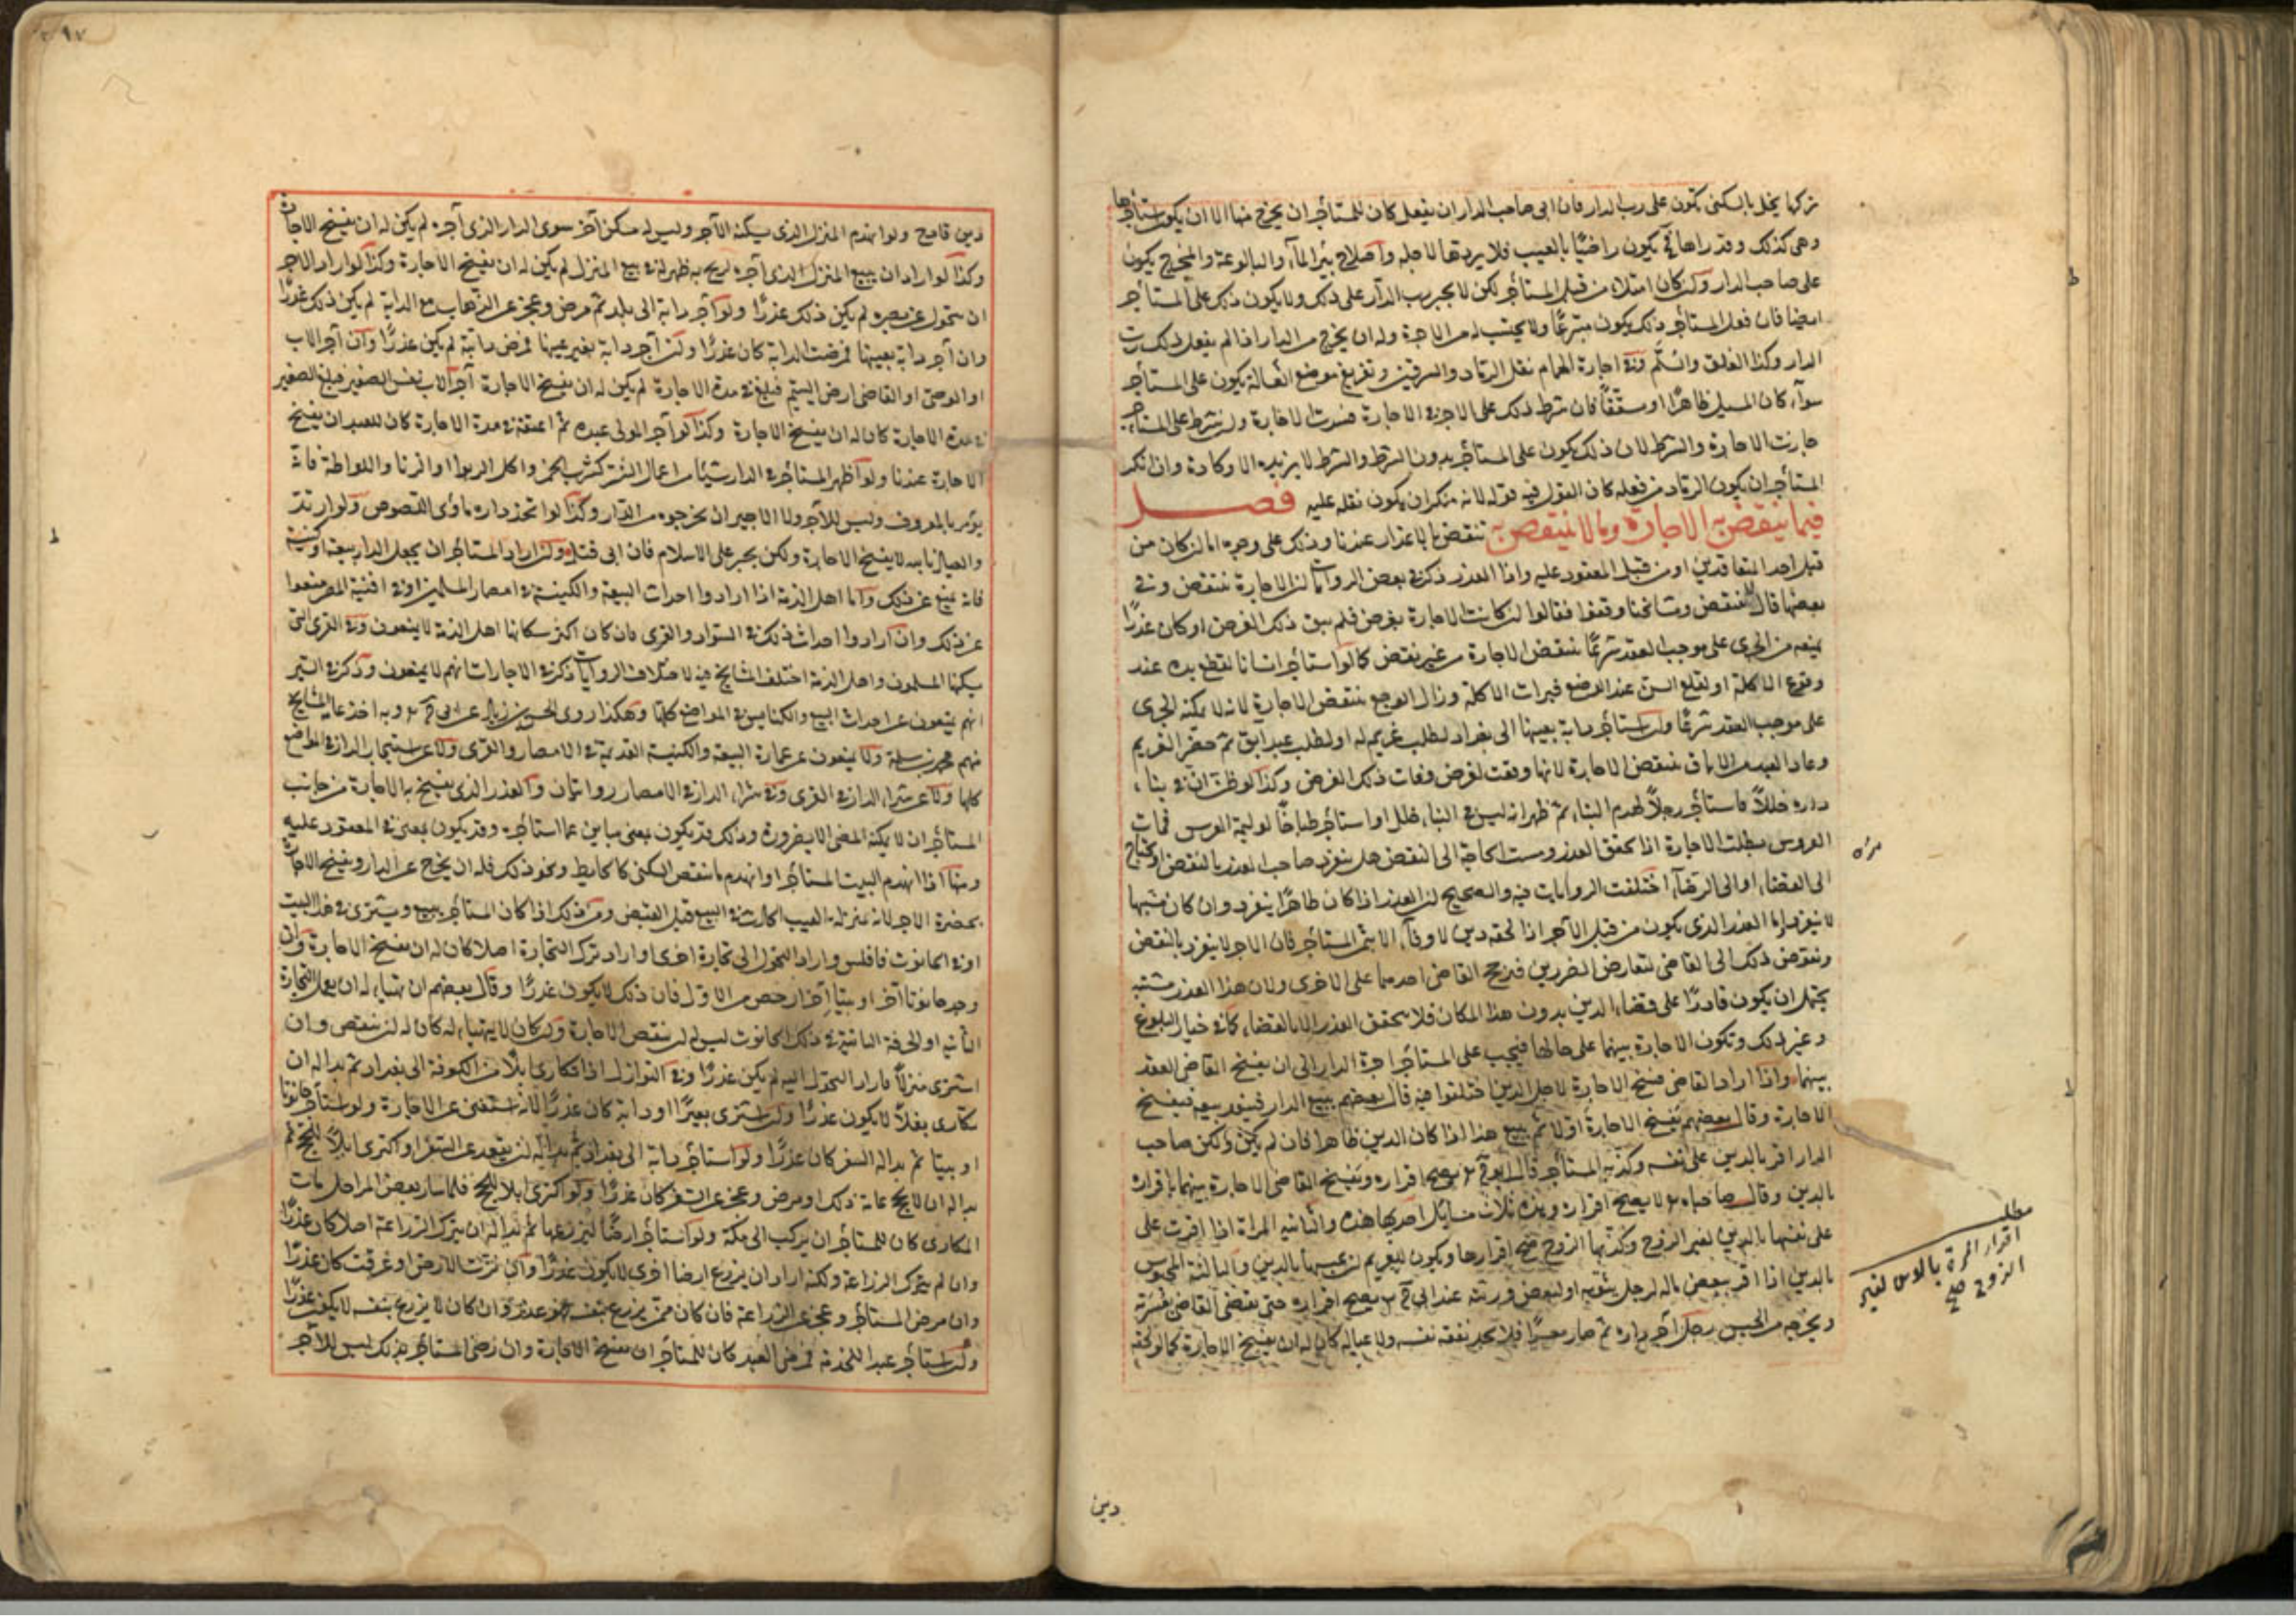 تركها يخل بالسكنى تكون على رب الدار فان ابى صاحب الدار ان يفعل كان للمستأجر ان يخرج منها الا ان يكون استأجرها
وهى كذلك وقد راها فح يكون راضيًا بالعيب فلا يردها لاجله واصلاح بئر الماء والبالوعة والمخرج يكون
على صاحب الدار وان كان امتلاء من قبل المستأجر لكن لا يجبر رب الدار على ذلك ولا يكون ذلك على المستأجر
ايضا فان فعل المستأجر ذلك يكون متبرعًا ولا يحتسب له من الاجرة وله ان يخرج من الدار اذا لم يفعل ذلك رب
الدار وكذا الغلق والسلّم وفى اجارة الحمام نقل الرماد والسرقين وتفريغ موضع الغسالة يكون على المستأجر
سواء كان المسيل ظاهرًا او مسقفًا فان شرط ذلك على الاجر فى الاجارة فسدت الاجارة وان شرط على المستأجر
جازت الاجارة والشرط لان ذلك يكون على المستأجر بدون الشرط والشرط لا يزيده الا وكادة وان انكر
المستأجر ان يكون الرماد من فعله كان القول فيه قوله لانه منكر ان يكون نقله عليه فصل
فيما ينتقض به الاجارة وما لا ينتقض به تنتقض بالاعذار عندنا وذلك على وجوه اما ان كان من
قبل احد المتعاقدين او من قبل المعقود عليه واذا العذر ذكر فى بعض الروايات ان الاجارة تنتقض وفى
بعضها قال لا تنتقض ومشائخنا وفقوا فقالوا ان كانت الاجارة لغرض فلم يبق ذلك الغرض او كان عذرًا
يمنعه من الجرى على موجب العقد شرعًا تنتقض الاجارة من غير نقض كما لو استأجر انسانا لقطع يده عند
وقوع الاكلة او لقلع السن عند الوجع فبرأت الاكلة وزال الوجع تنتقض الاجارة لانه لا يمكنه الجرى
على موجب العقد شرعًا ولو استأجر دابة بعينها الى بغداد لطلب غريم له او لطلب عبد آبق ثم حضر الغريم
وعاد العبد من الاباق تنتقض الاجارة لانها وقعت لغرض وفات ذلك الغرض وكذا لو ظن ان فى بناء
داره خللاً فاستأجر رجلاً لهدم البناء ثم ظهر انه ليس فى البناء خلل او استأجر طباخًا لوليمة العرس فماتت
العروس بطلت الاجارة اذا تحقق العذر ومست الحاجة الى النقض هل يتفرد صاحب العذر بالنقض او يحتاج
الى القضاء او الى الرضاء اختلفت الروايات فيه والصحيح ان العذر اذا كان ظاهرًا يتفرد وان كان مشتبها
لا يتفرد اما العذر الذى يكون من قبل الآجر اذا لحقه دين لا وفاء الا بثمن المستأجر فان الاجر لا يتفرد بالنقض
ونقض ذلك الى القاضى لتعارض الضررين فيرجح القاضى احدهما على الاخرى ولان هذا العذر مشتبه
يحتمل ان يكون قادرًا على قضاء الدين بدون هذا المكان فلا يتحقق العذر الا بالقضاء كما فى خيار البلوغ
وغير ذلك وتكون الاجارة بينهما على حالها فيجب على المستأجر اجرة الدار الى ان يفسخ القاضى العقد
بينهما واذا اراد القاضى فسخ الاجارة لاجل الدين اختلفوا فيه قال بعضهم يبيع الدار فينفذ بيعه فينفسخ
الاجارة وقال بعضهم يفسخ الاجارة اولا ثم يبيع هذا اذا كان الدين ظاهرا فان لم يكن ولكن صاحب
الدار اقر بالدين على نفسه وكذبه المستأجر قال ابو ح يصح اقراره ويفسخ القاضى الاجارة بينهما باقراره
بالدين وقال صاحباه لا يصح اقراره وهذه ثلاث مسائل احديها هذه والثانية المرأة اذا اقرت على
على نفسها بالدين لغير الزوج وكذبها الزوج صح اقرارها ويكون للغريم ان يحبسها بالدين والثالثة المحبوس
بالدين اذا اقر ببعض ماله لرجل يثق به او لبعض ورثته عند ابى ح يصح اقراره حتى يقضى القاضى عسرته
ويخرجه من الحبس رجل آجر داره ثم صار معسرًا فلا يجد نفقة نفسه ولا عياله كان له ان يفسخ الاجارة كما لو لحقه
دين
مطلب
اقرار المرأة بالدين لغير
الزوج صح
دين فادح ولو انهدم المنزل الذى يسكنه الآجر وليس له مسكن آخر سوى الدار الذى آجره لم يكن له ان يفسخ الاجارة
وكذا لو اراد ان يبيع المنزل الذى آجره لربح به ظهر له فى بيع المنزل لم يكن له ان يفسخ الاجارة وكذا لو اراد الاجر
ان يتحول عن مصره لم يكن ذلك عذرًا ولو آجر دابة الى بلد ثم مرض وعجز عن الذهاب مع الدابة لم يكن ذلك عذرًا
وان آجر دابة بعينها فمرضت الدابة كان عذرًا وان آجر دابة بغير عينها فمرض دابة لم يكن عذرًا وان آجر الاب
او الوصى او القاضى ارض اليتيم فبلغ فى مدة الاجارة لم يكن له ان يفسخ الاجارة آجر الاب نفس الصغير فبلغ الصغير
فى مدة الاجارة كان له ان يفسخ الاجارة وكذا لو آجر المولى عبده ثم اعتقه فى مدة الاجارة كان للعبد ان يفسخ
الاجارة عندنا ولو اظهر المستأجر فى الدار شيئا من اعمال الشر كشرب الخمر واكل الربوا او الزنا واللواطة فانه
يؤمر بالمعروف وليس للآجر ولا الاجيران يخرجوه من الدار وكذا لو اتخذ داره مأوى اللصوص ولو ارتد
والعياذ بالله لا يفسخ الاجارة ولكن يجبر على الاسلام فان ابى قتل وان اراد المستأجر ان يجعل الدار بيعة او كنيسة
فانه يمنع عن ذلك واما اهل الذمة اذا ارادوا احداث البيعة والكنيسة فى امصار المسلمين او فى افنية المصر منعوا
عن ذلك وان ارادوا احداث ذلك فى السواد والقرى فان كان اكثر سكانها اهل الذمة لا يمنعون وفى القرى التى
يسكنها المسلمون واهل الذمة اختلف المشايخ فيه لاختلاف الروايات ذكر فى الاجارات انهم لا يمنعون وذكر فى السير
انهم يمنعون عن احداث البيع والكنايس فى المواضع كلها وهكذا روى الحسن بن زياد عن ابى ح وبه اخذ عامة المشايخ
منهم محمد بن سلمة ولا يمنعون عن عمارة البيعة والكنيسة القديمة فى الامصار والقرى ولا عن استيجار الدار فى المواضع
كلها ولا عن شراء الدار فى القرى وفى شراء الدار فى الامصار روايتان والعذر الذى يفسخ به الاجارة من جانب
المستأجر ان لا يمكنه المضى الا بضرورة وذلك قد يكون بمعنى يباين عما استأجره وقد يكون بمعنى فى المعقود عليه
ومنها اذا انهدم البيت المستأجر او انهدم ما ينتقص السكنى كالحايط ونحو ذلك فله ان يخرج عن الدار ويفسخ الاجارة
بحضرة الاجر لانه بمنزلة العيب الحادث فى البيع قبل القبض ومن ذلك اذا كان المستأجر يبيع ويشترى فى هذا البيت
او فى الحانوت فافلس واراد التحول الى تجارة اخرى او اراد ترك التجارة اصلا كان له ان يفسخ الاجارة وان
وجد حانوتا آخر او بيتا آخر ارخص من الاول فان ذلك لا يكون عذرًا وقال بعضهم ان تهيأ له ان يعمل التجارة
الثانية او الحرفة الثانية فى ذلك الحانوت ليس له ان ينقض الاجارة وان كان لا يتهيأ له كان له ان ينقض وان
اشترى منزلاً فاراد التحول اليه لم يكن عذرًا وفى النوازل اذا تكارى ابلاً من الكوفة الى بغداد ثم بدا له ان
يتكارى بغلاً لا يكون عذرًا وان اشترى بعيرًا او دابة كان عذرًا لانه استغنى عن الاجارة ولو استأجر حانوتا
او بيتا ثم بدا له السفر كان عذرًا ولو استأجر دابة الى بغداد ثم بدا له ان يقعد عن السفر او اكترى ابلاً للحج ثم
بدا له ان لا يحج عامه ذلك او مرض وعجز عن السفر كان عذرًا ولو اكترى ابلا للحج فلما سار بعض المراحل مات
المكارى كان للمستأجر ان يركب الى مكة ولو استأجر ارضًا ليزرعها ثم بدا له ان يترك الزراعة اصلا كان عذرًا
وان لم يترك الزراعة ولكنه اراد ان يزرع ارضا اخرى لا يكون عذرًا وان نزت الارض وغرقت كان عذرًا
وان مرض المستأجر وعجز عن الزراعة فان كان ممن يزرع بنفسه فهو عذر وان كان لا يزرع بنفسه لا يكون عذرًا
وان استأجر عبدا للخدمة فمرض العبد كان للمستأجر ان يفسخ الاجارة وان رضى المستأجر بذلك ليس للآجر